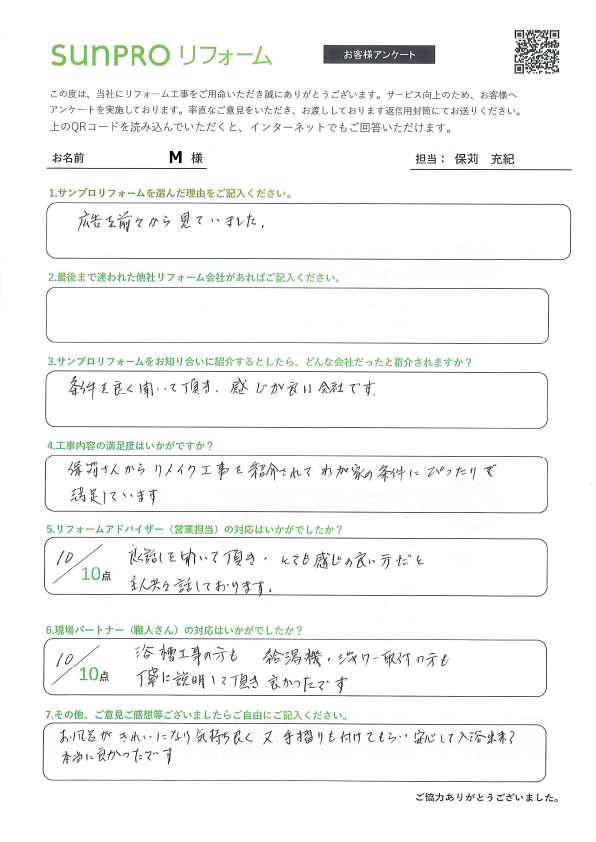 sunpro リフォーム
お客様アンケート
この度は、当社にリフォーム工事をご用命いただき誠にありがとうございます。サービス向上のため、お客様へ
アンケートを実施しております。率直なご意見をいただき、お渡ししております返信用封筒にてお送りください。
上のQRコードを読み込んでいただくと、インターネットでもご回答いただけます。
お名前 M 様
担当： 保苅 充紀
1.サンプロリフォームを選んだ理由をご記入ください。
広告を前々から見ていました。
2.最後まで迷われた他社リフォーム会社があればご記入ください。
3.サンプロリフォームをお知り合いに紹介するとしたら、どんな会社だったと紹介されますか？
条件を良く聞いて頂き、感じが良い会社です。
4.工事内容の満足度はいかがですか？
保苅さんからリメイク工事を紹介されてわが家の条件にぴったりで
満足しています
5.リフォームアドバイザー（営業担当）の対応はいかがでしたか？
10／10点
良く話しを聞いて頂き・とても感じの良い方だと
主人共々話しております。
6.現場パートナー（職人さん）の対応はいかがでしたか？
10／10点
浴槽工事の方も 給湯機・シャワー取付の方も
丁寧に説明して頂き良かったです
7.その他、ご意見ご感想等ございましたらご自由にご記入ください。
お風呂がきれいになり気持ち良く又手摺りも付けてもらい安心して入浴出来て
本当に良かったです
ご協力ありがとうございました。